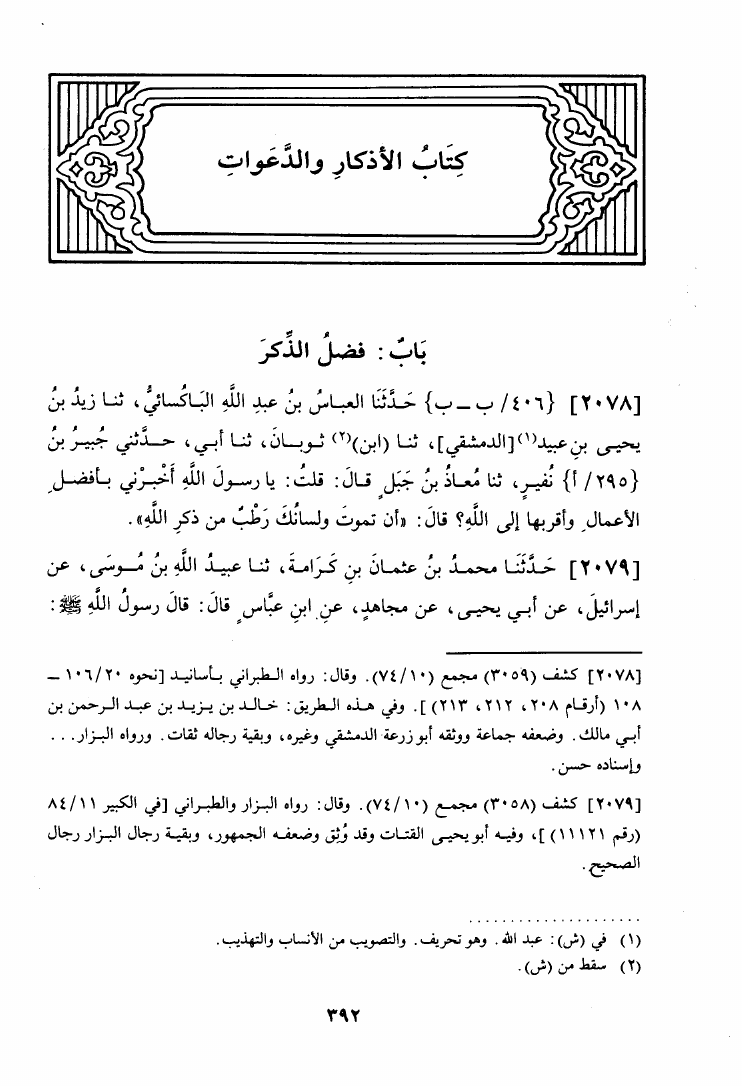 كِتَابُ الأذكارِ والدَّعَواتِ
بَابٌ : فضلُ الذِّكرَ
[٢٠٧٨] {٤٠٦/ ب ــ ب} حَدَّثَنَا العباسُ بنُ عبدِ اللَّهِ البَاكُسائيُّ، ثنا زيدُ بنُ
يحيى بنِ عبيد(١) [الدمشقي]، ثنا (ابن)(٢) ثوبانَ، ثنا أبي، حدَّثني جُبيرُ بنُ
{٢٩٥/ أ} نُفيرٍ، ثنا مُعاذُ بنُ جَبَلٍ قالَ: قلتُ: يا رسولَ اللَّهِ أَخْبِرْني بأفضلِ
الأعمالِ وأقربها إلى اللَّهِ؟ قالَ: «أن تموتَ ولسانُكَ رَطْبٌ من ذكرِ اللَّهِ».
[٢٠٧٩] حَدَّثَنَا محمدُ بنُ عثمانَ بنِ كَرَامةَ، ثنا عبيدُ اللَّهِ بنُ مُوسَى، عن
إسرائيلَ، عن أبي يحيى، عن مجاهدٍ، عنِ ابنِ عبَّاسٍ قالَ: قالَ رسولُ اللَّهِ ﷺ:
[٢٠٧٨] كشف (٣٠٥٩) مجمع (٧٤/١٠). وقال: رواه الطبراني بأسانيد [نحوه ١٠٦/٢٠ ــ
١٠٨ (أرقام ٢٠٨، ٢١٢، ٢١٣)]. وفي هذه الطريق: خالد بن يزيد بن عبد الرحمن بن
أبي مالك. وضعفه جماعة ووثقه أبو زرعة الدمشقي وغيره، وبقية رجاله ثقات. ورواه البزار...
وإسناده حسن.
[٢٠٧٩] كشف (٣٠٥٨) مجمع (٧٤/١٠). وقال: رواه البزار والطبراني [في الكبير ٨٤/١١
(رقم ١١١٢١)]، وفيه أبو يحيى القتات وقد وُثِق وضعفه الجمهور، وبقية رجال البزار رجال
الصحيح.
(١) في (ش): عبد الله. وهو تحريف. والتصويب من الأنساب والتهذيب.
(٢) سقط من (ش).
٣٩٢